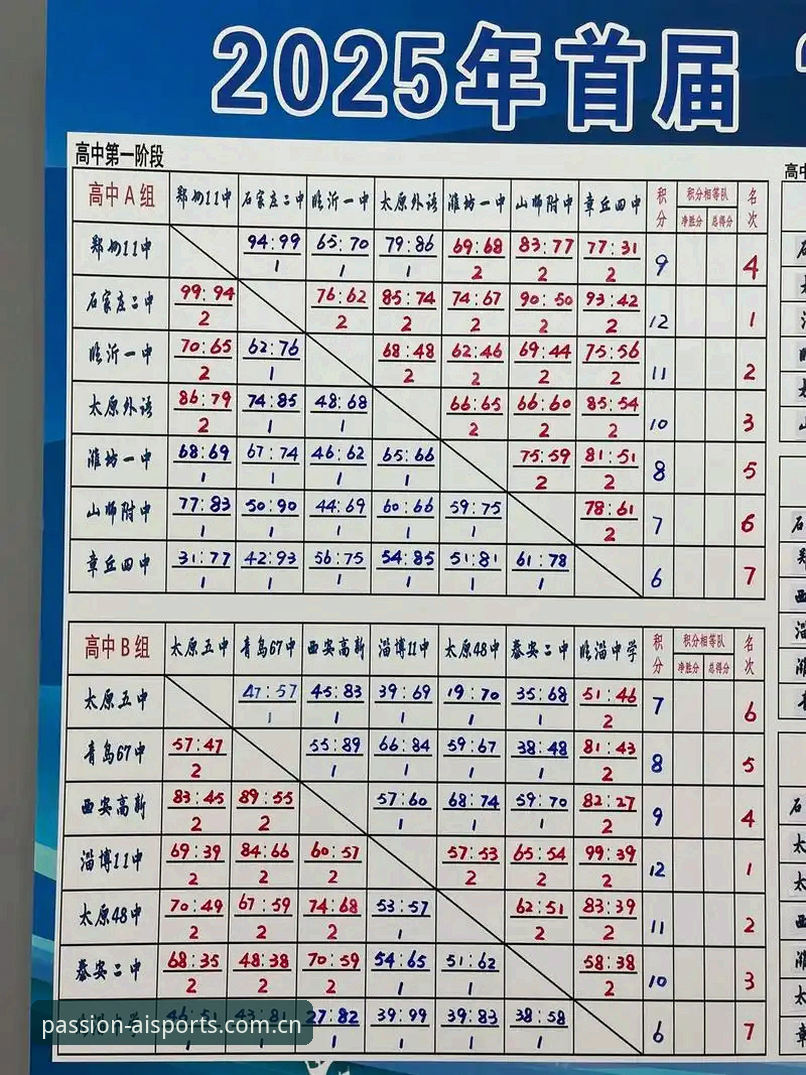 2025年首届
高中第一阶段
高中A组 郑州11中 石家庄二中 临沂一中 太原外语 潍坊一中 山师附中 章丘四中 积分 积分相等队 净胜分 总得分 名次
郑州11中 94:99 1 65:70 1 79:86 1 69:68 2 83:77 2 77:31 2 9 4
石家庄二中 99:94 2 76:62 2 85:74 2 74:67 2 90:50 2 93:42 2 12 1
临沂一中 70:65 2 62:76 1 68:48 2 62:46 2 69:44 2 75:56 2 11 2
太原外语 86:79 2 74:85 1 48:68 1 66:65 2 66:60 2 85:54 2 10 3
潍坊一中 68:69 1 67:74 1 46:62 1 65:66 1 75:59 2 81:51 2 8 5
山师附中 77:83 1 50:90 1 44:69 1 60:66 1 59:75 1 78:61 2 7 6
章丘四中 31:77 1 42:93 1 56:75 1 54:85 1 51:81 1 61:78 1 6 7
高中B组 太原五中 青岛67中 西安高新 淄博11中 太原48中 泰安二中 临淄中学 积分 积分相等队 净胜分 总得分 名次
太原五中 47:57 1 45:83 1 39:69 1 19:70 1 35:68 1 51:46 2 7 6
青岛67中 57:47 2 55:89 1 66:84 1 59:67 1 38:48 1 81:43 2 8 5
西安高新 83:45 2 89:55 2 57:60 1 68:74 1 59:70 1 82:27 2 9 4
淄博11中 69:39 2 84:66 2 60:57 2 57:53 2 65:54 2 99:39 2 12 1
太原48中 70:49 2 67:59 2 74:68 2 53:57 1 62:51 2 83:39 2 11 2
泰安二中 68:35 2 48:38 2 70:59 2 54:65 1 51:62 1 58:38 2 10 3
46:51 1 43:81 1 27:82 1 39:99 1 39:83 1 38:58 1 6 7
passion-aisports.com.cn